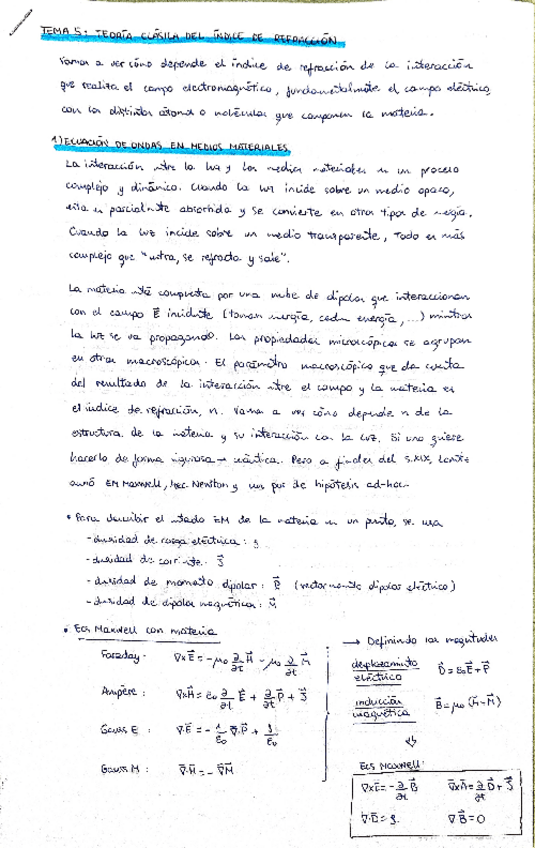 TEMA 5: TEORÍA CLÁSICA DEL ÍNDICE DE REFRACCIÓN
Vamos a ver cómo depende el índice de refracción de la interacción
que realiza el campo electromagnético, fundamentalmente el campo eléctrico,
con los distintos átomos o moléculas que componen la materia.
1) ECUACIÓN DE ONDAS EN MEDIOS MATERIALES
La interacción entre la luz y los medios materiales es un proceso
complejo y dinámico. Cuando la luz incide sobre un medio opaco,
ésta es parcialmente absorbida y se convierte en otros tipos de energía.
Cuando la luz incide sobre un medio transparente, todo es más
complejo que "entra, se refracta y sale".
La materia está compuesta por una nube de dipolos que interaccionan
con el campo E⃗ incidente (toman energía, ceden energía, ...) mientras
la luz se va propagando. Las propiedades microscópicas se agrupan
en otras macroscópicas. El parámetro macroscópico que da cuenta
del resultado de la interacción entre el campo y la materia es
el índice de refracción, n. Vamos a ver cómo depende n de la
estructura de la materia y su interacción con la luz. Si uno quiere
hacerlo de forma rigurosa → cuántica. Pero a finales del S.XIX, Lorentz
aunó EM Maxwell, Mec. Newton y un par de hipótesis ad-hoc.
• Para describir el estado EM de la materia en un punto, se usa
- densidad de carga eléctrica: ρ
- densidad de corriente: J⃗
- densidad de momento dipolar: P⃗ (vector momento dipolar eléctrico)
- densidad de dipolos magnéticos: M⃗
• Ecs Maxwell con materia
Faraday: ∇×E⃗ = -μ₀ ∂/∂t H⃗ - μ₀ ∂/∂t M⃗
Ampère: ∇×H⃗ = ε₀ ∂/∂t E⃗ + ∂/∂t P⃗ + J⃗
Gauss E: ∇·E⃗ = -1/ε₀ ∇·P⃗ + ρ/ε₀
Gauss M: ∇·H⃗ = -∇M⃗
→ Definiendo las magnitudes
desplazamiento eléctrico D⃗ = ε₀E⃗ + P⃗
inducción magnética B⃗ = μ₀ (H⃗-M⃗)
Ecs Maxwell:
∇×E⃗ = -∂/∂t B⃗ ∇×H⃗ = ∂/∂t D⃗ + J⃗
∇·D⃗ = ρ ∇B⃗ = 0